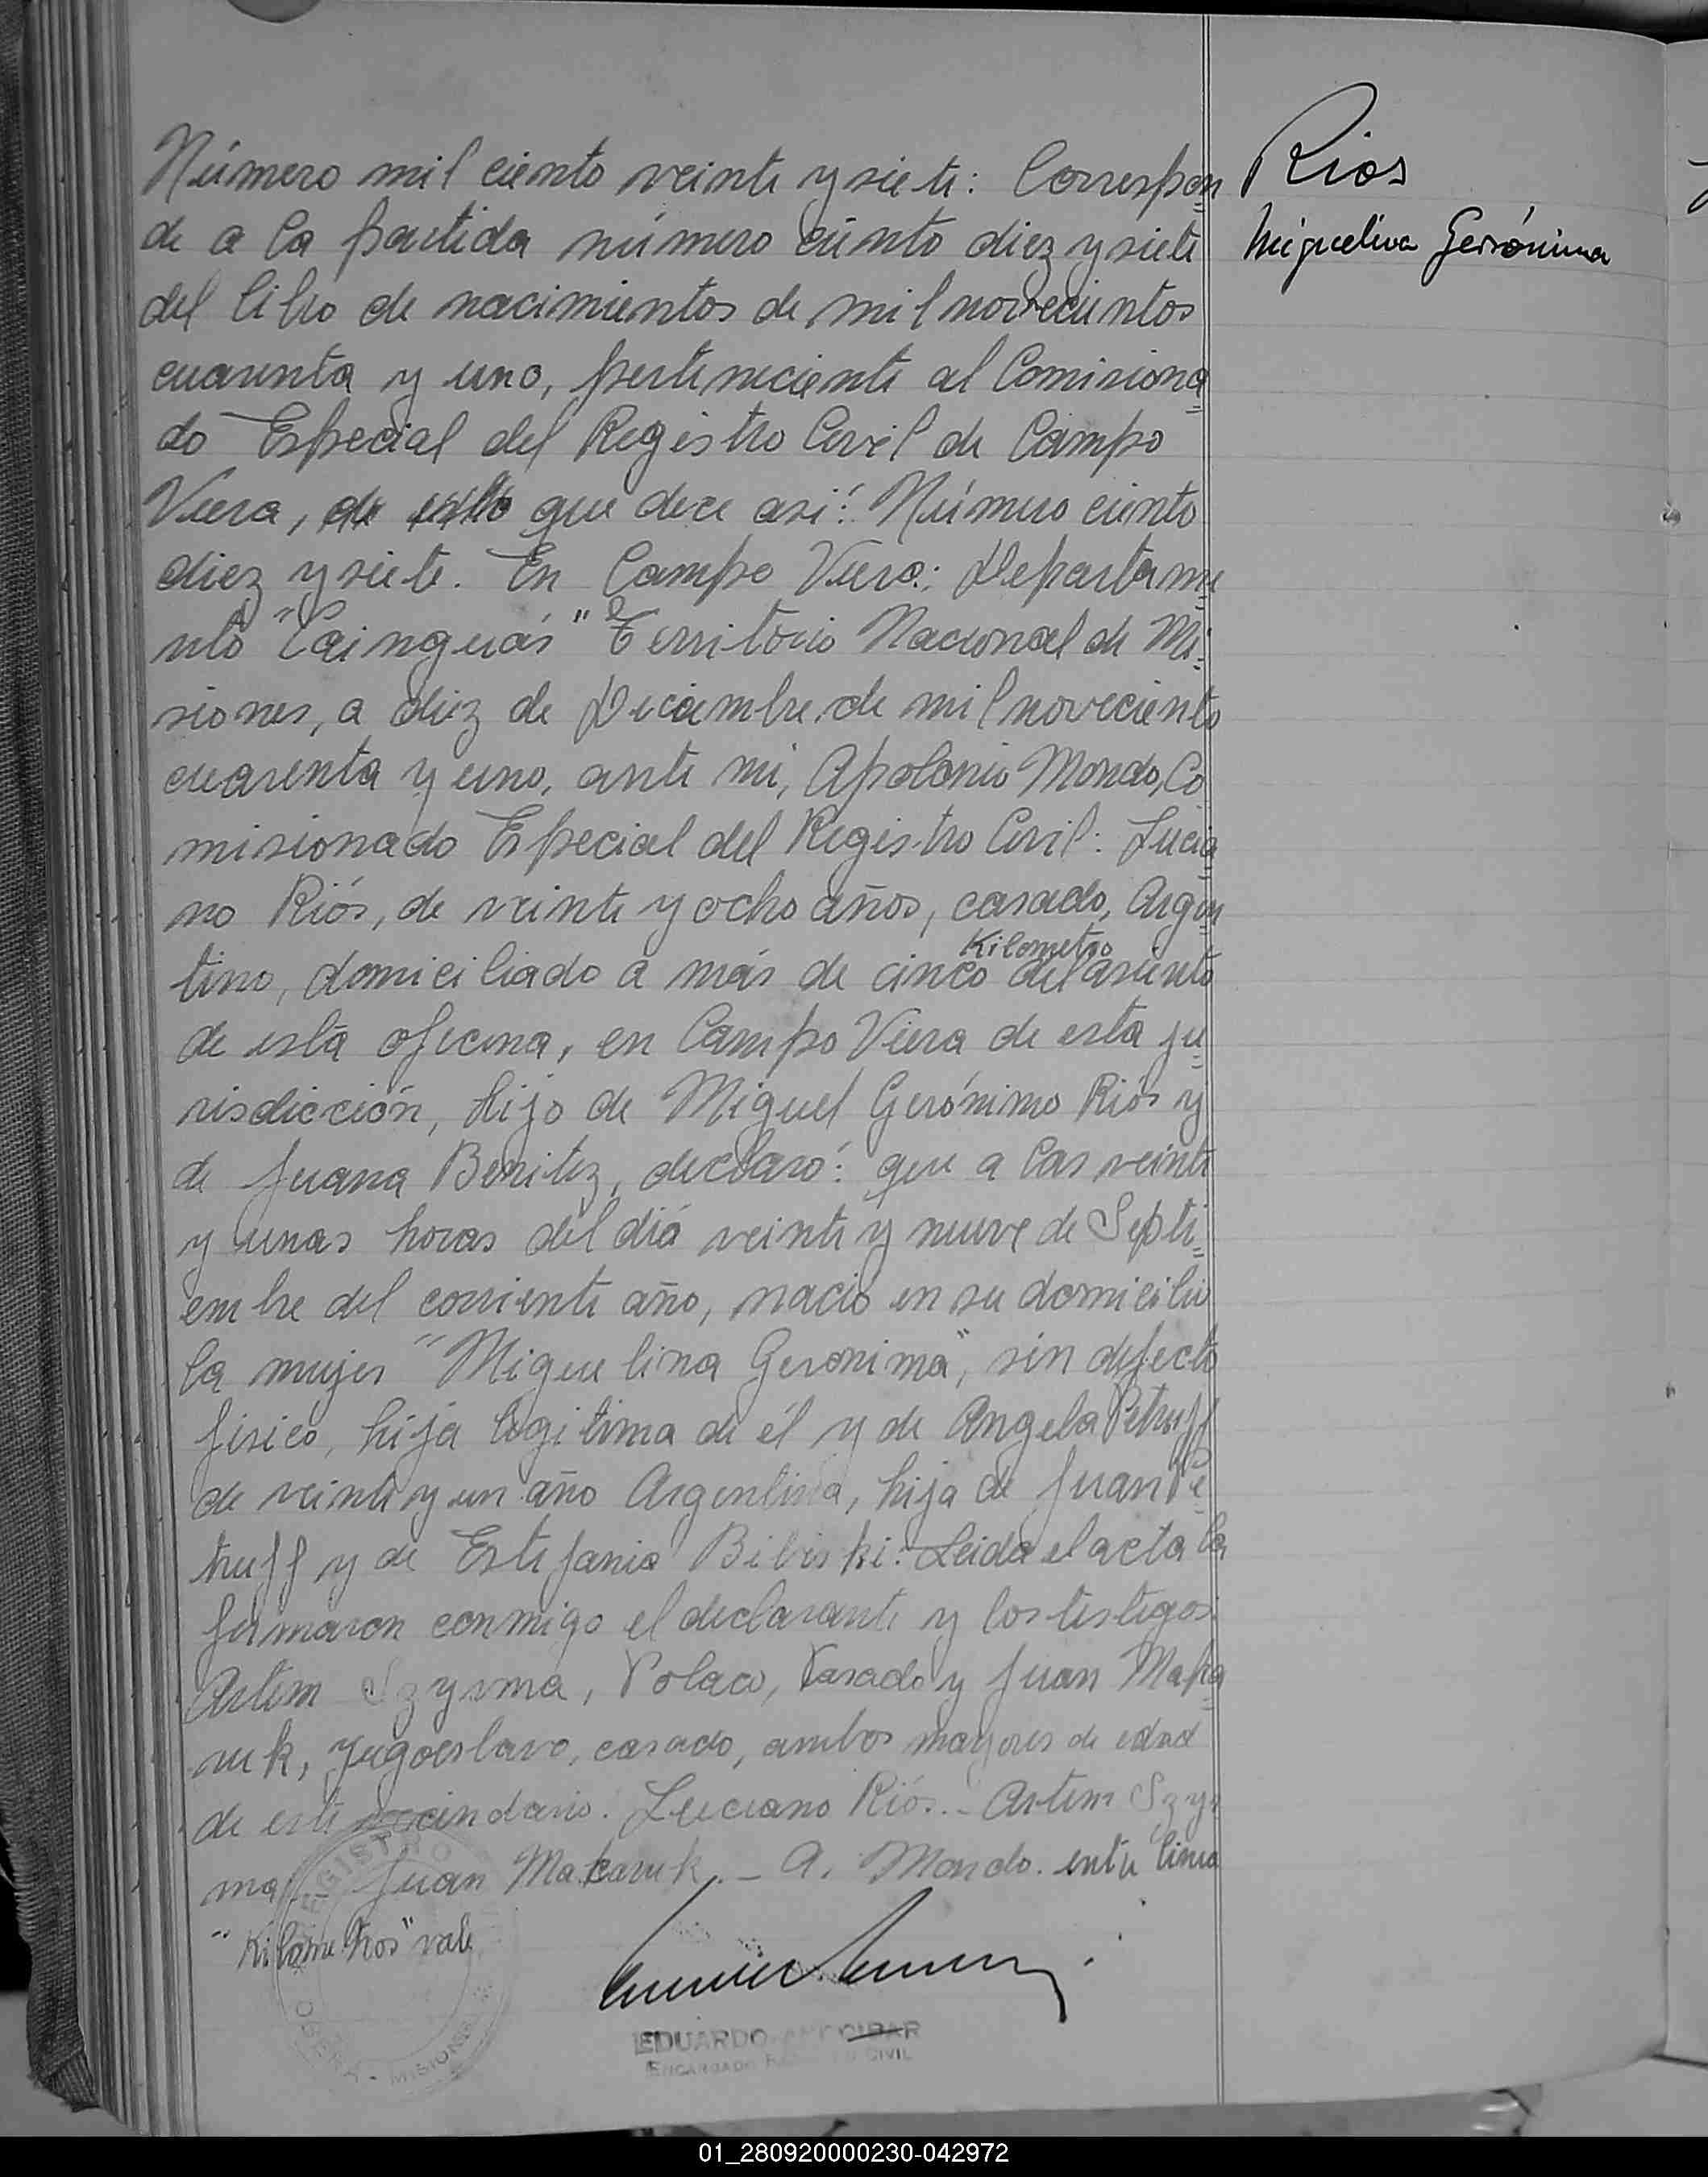 Número mil ciento veinte y siete: Correspon
de a la partida número ciento diez y siete
del libro de nacimientos de mil novecientos
cuarenta y uno, perteneciente al Comisiona
do Especial del Registro Civil de Campo
Viera, de que dice así: Número ciento
diez y siete. En Campo Viera: Departame
nto "Cainguás" Territorio Nacional de Mi
siones, a diez de Diciembre de mil novecientos
cuarenta y uno, ante mi, Apolonio Mondo, Co
misionado Especial del Registro Civil: Lucia
no Riós, de veinte y ocho años, casado, Argen
Kilometro
tino, domiciliado a más de cinco del asiento
de esta oficina, en Campo Viera de esta ju
risdicción, hijo de Miguel Gerónimo Riós y
de Juana Benitez, declaró: que a las veinte
y unas horas del diá veinte y nueve de Septi
embre del corriente año, nació en su domicilio
la mujer "Miguelina Geronima", sin defecto
fisico, hija legitima de él y de Angela Petruff
de veinte y un año Argentina, hija de Juan Pe
truff y de Estefania Bibiski: Leida el acta la
firmaron conmigo el declarante y los testigos
Artem Szyrma, Polaco, Casado y Juan Maka
ruk, Yugoeslavo, casado, ambos mayores de edad
de este vecindario. Luciano Riós.- Artem Szyr
ma.- Juan Makaruk.- A. Mondo. entre linea
"Kilometros" vale
Rios
Miguelina Gerónima
REGISTRO
OBERA - MISIONES
EDUARDO
ENCARGADO REGISTRO CIVIL
01_280920000230-042972